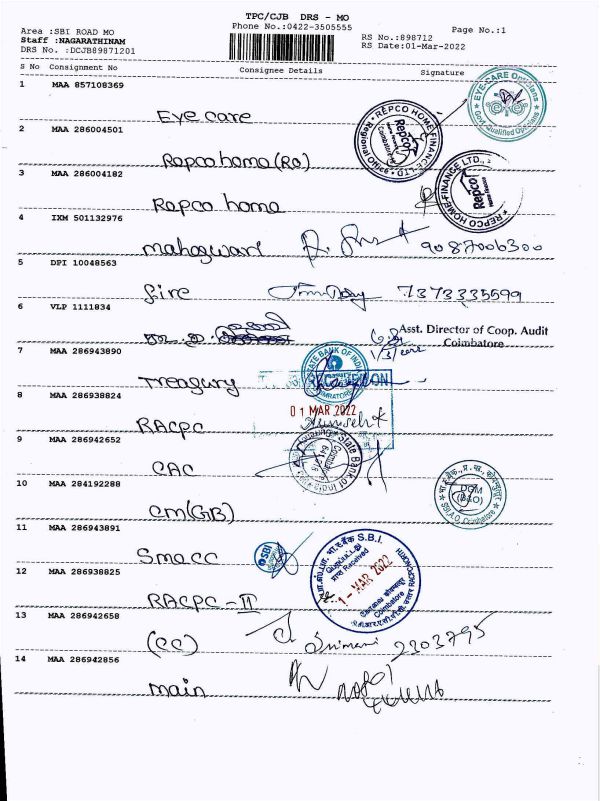 TPC/CJB DRS - MO
Phone No.:0422-3505555
Area :SBI ROAD MO
Staff :NAGARATHINAM
DRS No. :DCJB89871201
RS No.:898712
RS Date:01-Mar-2022
Page No.:1
S No Consignment No Consignee Details Signature
1 MAA 857108369
Eye care
EYE-CARE Opticians
Govt. Qualified Opticians
2 MAA 286004501
Repco home (RO)
REPCO HOME FINANCE LTD.
Repco
3 MAA 286004182
Repco home
REPCO HOME FINANCE LTD.,
Repco
4 IXM 501132976
mahaswari 9087006300
5 DPI 10048563
fire 7373335599
6 VLP 1111834
Asst. Director of Coop. Audit
Coimbatore
1/3/2022
7 MAA 286943890
Treasury
STATE BANK OF INDIA
8 MAA 286938824
01 MAR 2022
RACPC
9 MAA 286942652
State Bank of India
CAC
10 MAA 284192288
DGM
(B&O)
SBI A.O. Coimbatore
cm(GB)
11 MAA 286943891
Smecc
SBI
S.B.I.
प्राप्त Received
1 - MAR 2022
Coimbatore
12 MAA 286938825
RACPC - II
13 MAA 286942658
(CC) 2303795
14 MAA 286942856
main